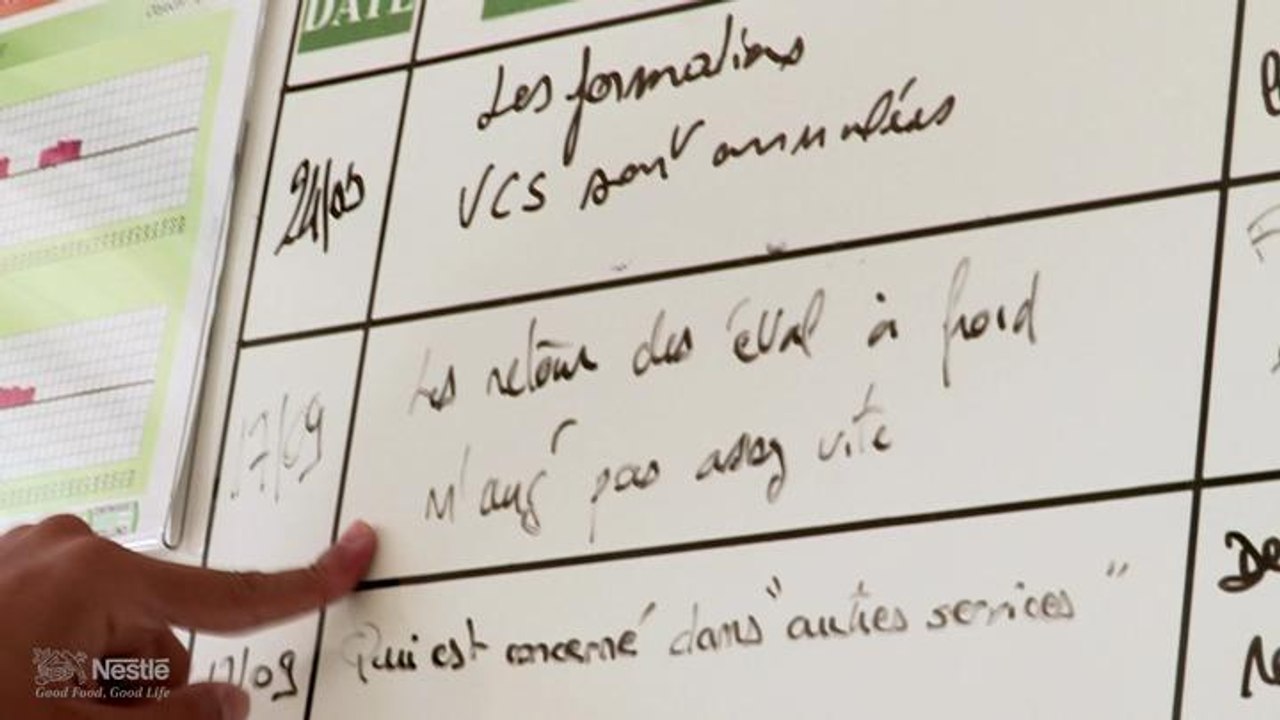 DATE
Les formations
24/09 VCS sont annulées
Les retour des éval à froid
17/09
pas assez vite
17/09 Qui est concerné dans "autres services"
De
Nestlé
Good Food, Good Life